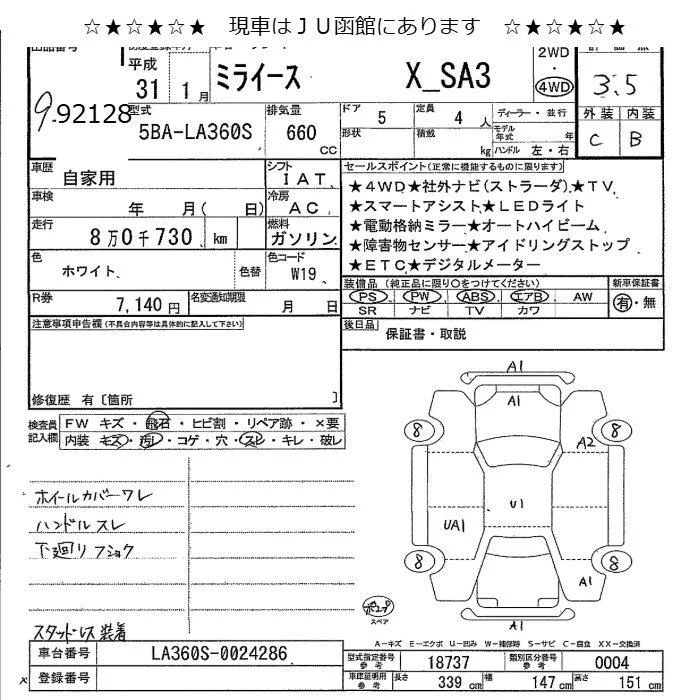 ☆★☆★☆★ 現車はＪＵ函館にあります ☆★☆★☆★
平成
31 1月
ミライース X_SA3
2WD
・
4WD
3.5
9.92128
型式
5BA-LA360S
排気量
660
CC
ドア 5
定員 4 人
形状
積載 kg
ディーラー・並行
モデル年式 年
ハンドル 左・右
外装 内装
C B
車歴
自家用
シフト
IAT
セールスポイント(正常に機能するものに限ります)
★4WD★社外ナビ(ストラーダ)★TV
★スマートアシスト★LEDライト
★電動格納ミラー★オートハイビーム
★障害物センサー★アイドリングストップ
★ETC★デジタルメーター
車検
年 月( 日)
冷房
AC
走行
8万0千730 km
燃料
ガソリン
色
ホワイト
色替
色コード
W19
装備品(純正品に限り○をつけてください)
PS PW ABS エアB AW
SR ナビ TV カワ
新車保証書
有・無
R券
7,140円
名変通知期限
月 日
後日品
保証書・取説
注意事項申告欄(不具合内容等は具体的に記入して下さい)
修復歴 有〔箇所 〕
検査員記入欄
FW キズ・飛石・ヒビ割・リペア跡・×要
内装 キズ・汚レ・コゲ・穴・スレ・キレ・破レ
ホイールカバーワレ
ハンドルスレ
下廻リフショク
スタッドレス装着
A1
A1
8
8
A2
U1
UA1
8
8
A1
A1
スペア
A-キズ E-エクボ U-凹み W-補修跡 S-サビ C-腐食 XX-交換済
車台番号
LA360S-0024286
登録番号
型式指定番号 参考
18737
類別区分番号 参考
0004
車庫証明用 参考
長さ 339 cm 幅 147 cm 高さ 151 cm